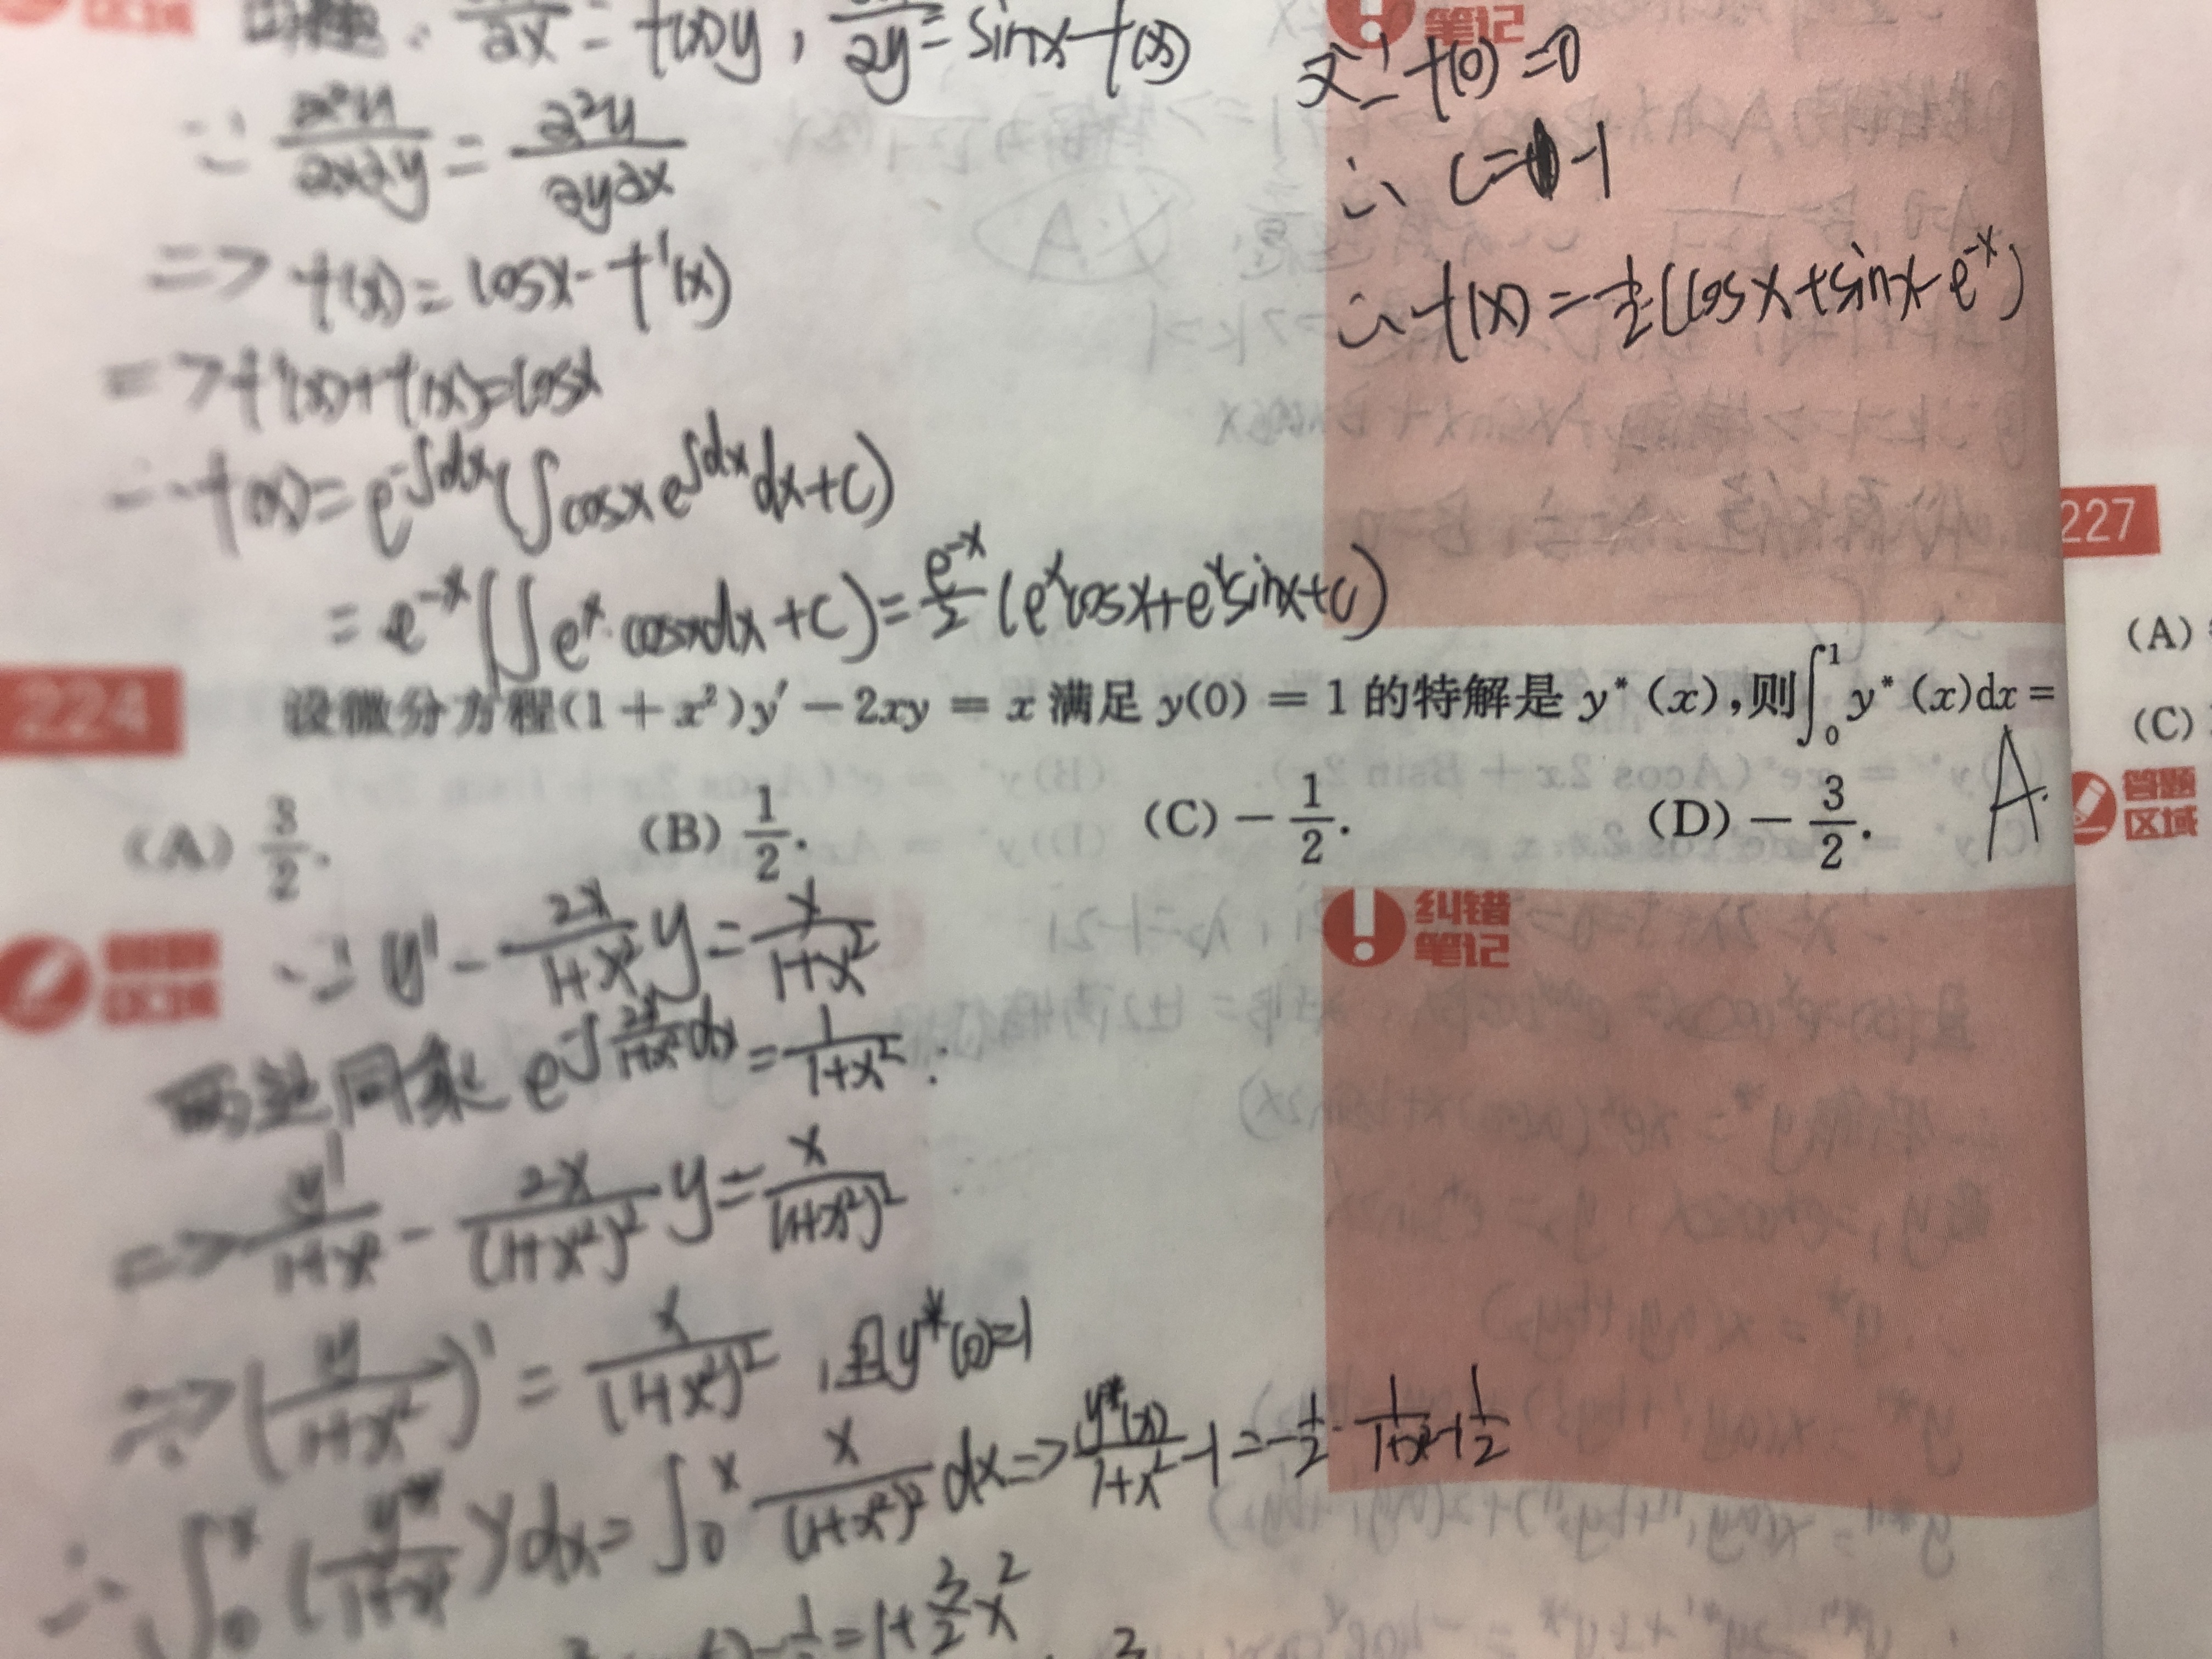 ∂x = f(x)y , ∂y = sinx-f(x)
∵ ∂²u/∂x∂y = ∂²u/∂y∂x
=> f(x) = cosx-f'(x)
=> f'(x)+f(x)=cosx
∴ f(x)= e^{-∫dx}(∫cosx e^{∫dx}dx+C)
= e^{-x}(∫e^x·cosxdx+C)= e^{-x}/2 (e^xcosx+e^xsinx+C)
笔记
又∵ f(0)=0
∴ C=-1
∴ f(x)=1/2(cosx+sinx-e^{-x})
224
设微分方程(1+x²)y′-2xy=x 满足 y(0)=1 的特解是 y*(x),则∫₀¹y*(x)dx=
A.
(A) 3/2. (B) 1/2. (C) -1/2. (D) -3/2.
区域
纠错
笔记
∵ y' - 2x/(1+x²) y = x/(1+x²)
两边同乘 e^{-∫2x/(1+x²)dx} = 1/(1+x²) :
=> y'/(1+x²) - 2x/(1+x²)² y = x/(1+x²)²
=> (y/(1+x²))' = x/(1+x²)² ,且y*(0)=1
∴ ∫₀ˣ (y*/(1+x²))'dx = ∫₀ˣ x/(1+x²)² dx => y*(x)/(1+x²) -1 = -1/2 · 1/(1+x²) + 1/2
=1+3/2x²
227
(A)
(C)
答题
区域